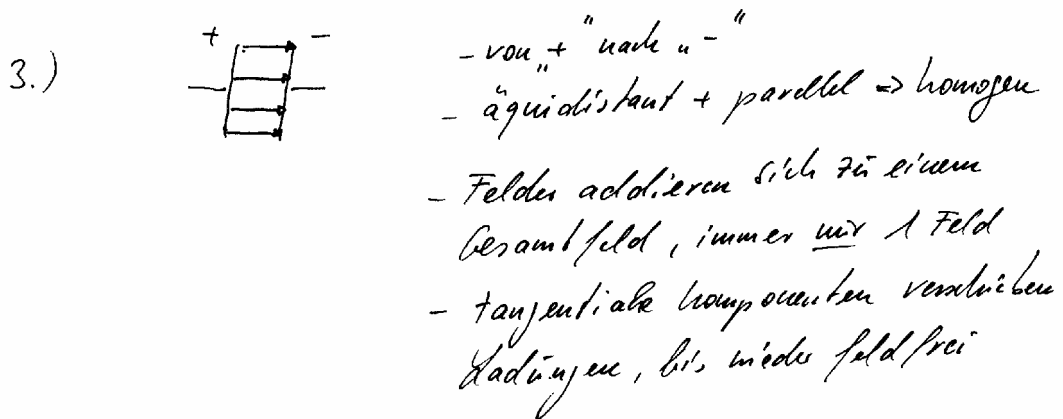 3.)
+ -
- von „+" nach „-"
- äquidistant + parallel => homogen
- Felder addieren sich zu einem
Gesamtfeld, immer nur 1 Feld
- tangentiale Komponenten verschieben
Ladungen, bis wieder feldfrei